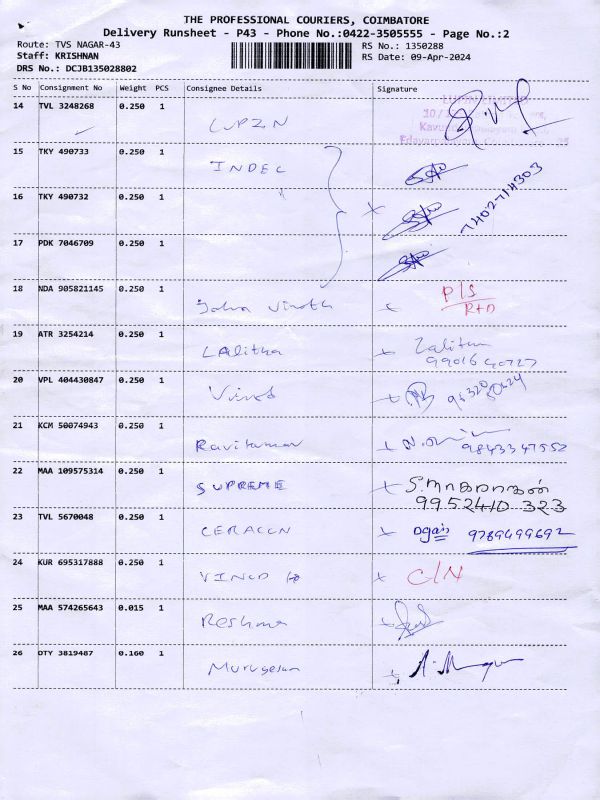 THE PROFESSIONAL COURIERS, COIMBATORE
Delivery Runsheet - P43 - Phone No.:0422-3505555 - Page No.:2
Route: TVS NAGAR-43
RS No.: 1350288
Staff: KRISHNAN
RS Date: 09-Apr-2024
DRS No.: DCJB135028802
S No Consignment No Weight PCS Consignee Details Signature
14 TVL 3248268 0.250 1
LUPIN
15 TKY 490733 0.250 1
INDEC
16 TKY 490732 0.250 1
7402714303
17 PDK 7046709 0.250 1
18 NDA 905821145 0.250 1 P/S
John Vinoth RTO
19 ATR 3254214 0.250 1 Lalitha
Lalitha 9901640727
20 VPL 404430847 0.250 1
Vinod
21 KCM 50074943 0.250 1
Ravikumar 9843347552
22 MAA 109575314 0.250 1
SUPREME S. நாகராகன்
9952410 323
23 TVL 5670048 0.250 1
CERACON 9789499692
24 KUR 695317888 0.250 1 C/N
VINCO
25 MAA 574265643 0.015 1
Reshma
26 OTY 3819487 0.160 1
Murugesan